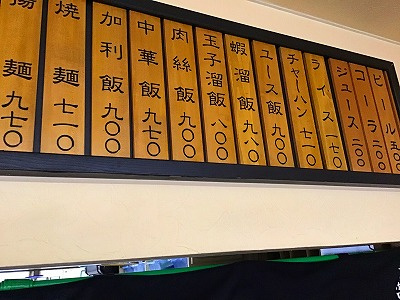 ビール 五〇
コーラ 二〇〇
ジュース 二〇〇
ライス 一七〇
チャーハン 七一〇
ユース飯 九〇〇
蝦溜飯 九八〇
玉子溜飯 八〇〇
肉絲飯 九〇〇
中華飯 九七〇
加利飯 九〇〇
焼麺 七一〇
揚麺 九七〇